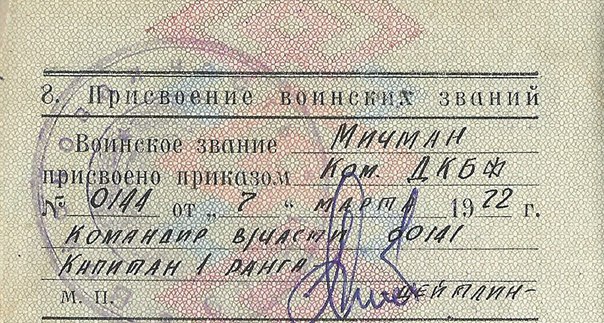 8. Присвоение воинских званий
Воинское звание Мичман
присвоено приказом Ком. ДКБФ
№ 0144 от „ 7 “ марта 1972 г.
Командир в/части 60141
Капитан 1 ранга
М. П. Цейтлин-